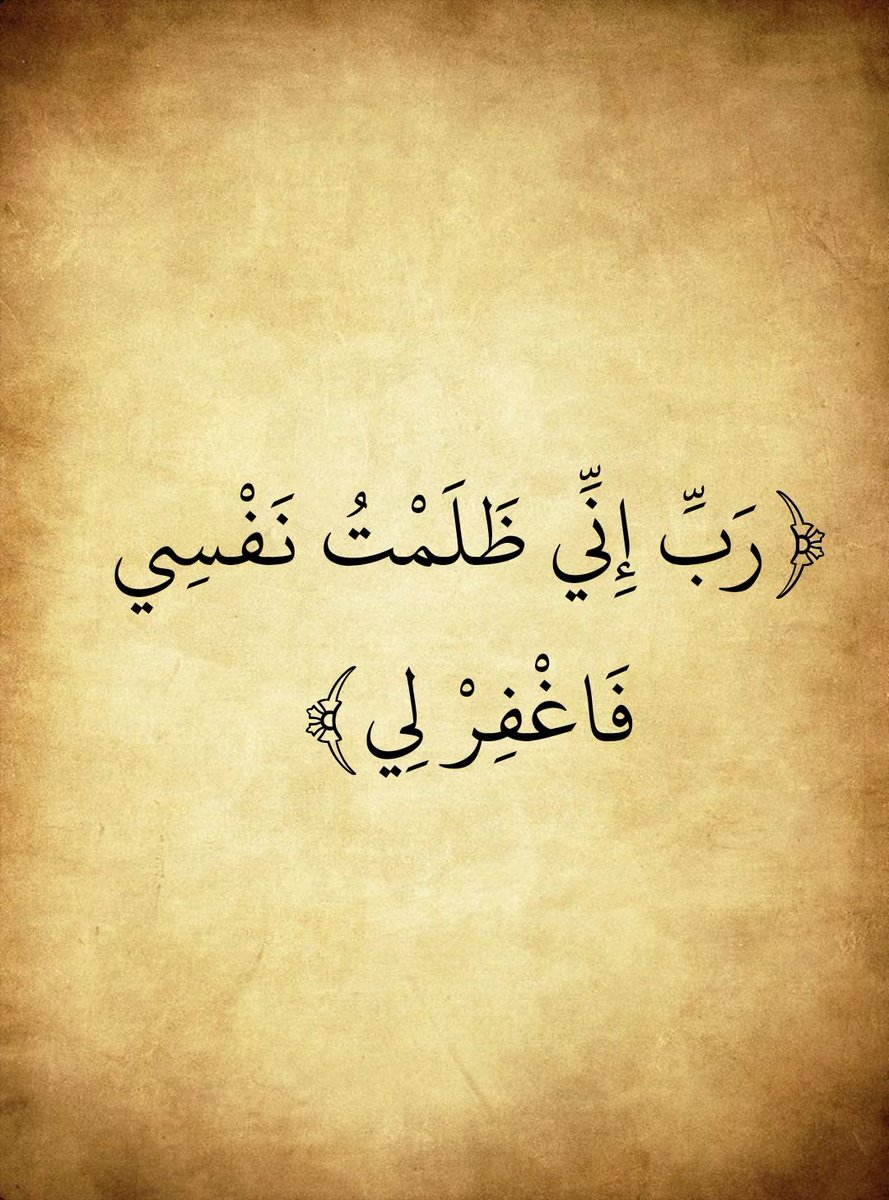 ﴿رَبِّ إِنِّي ظَلَمْتُ نَفْسِي
فَاغْفِرْ لِي﴾